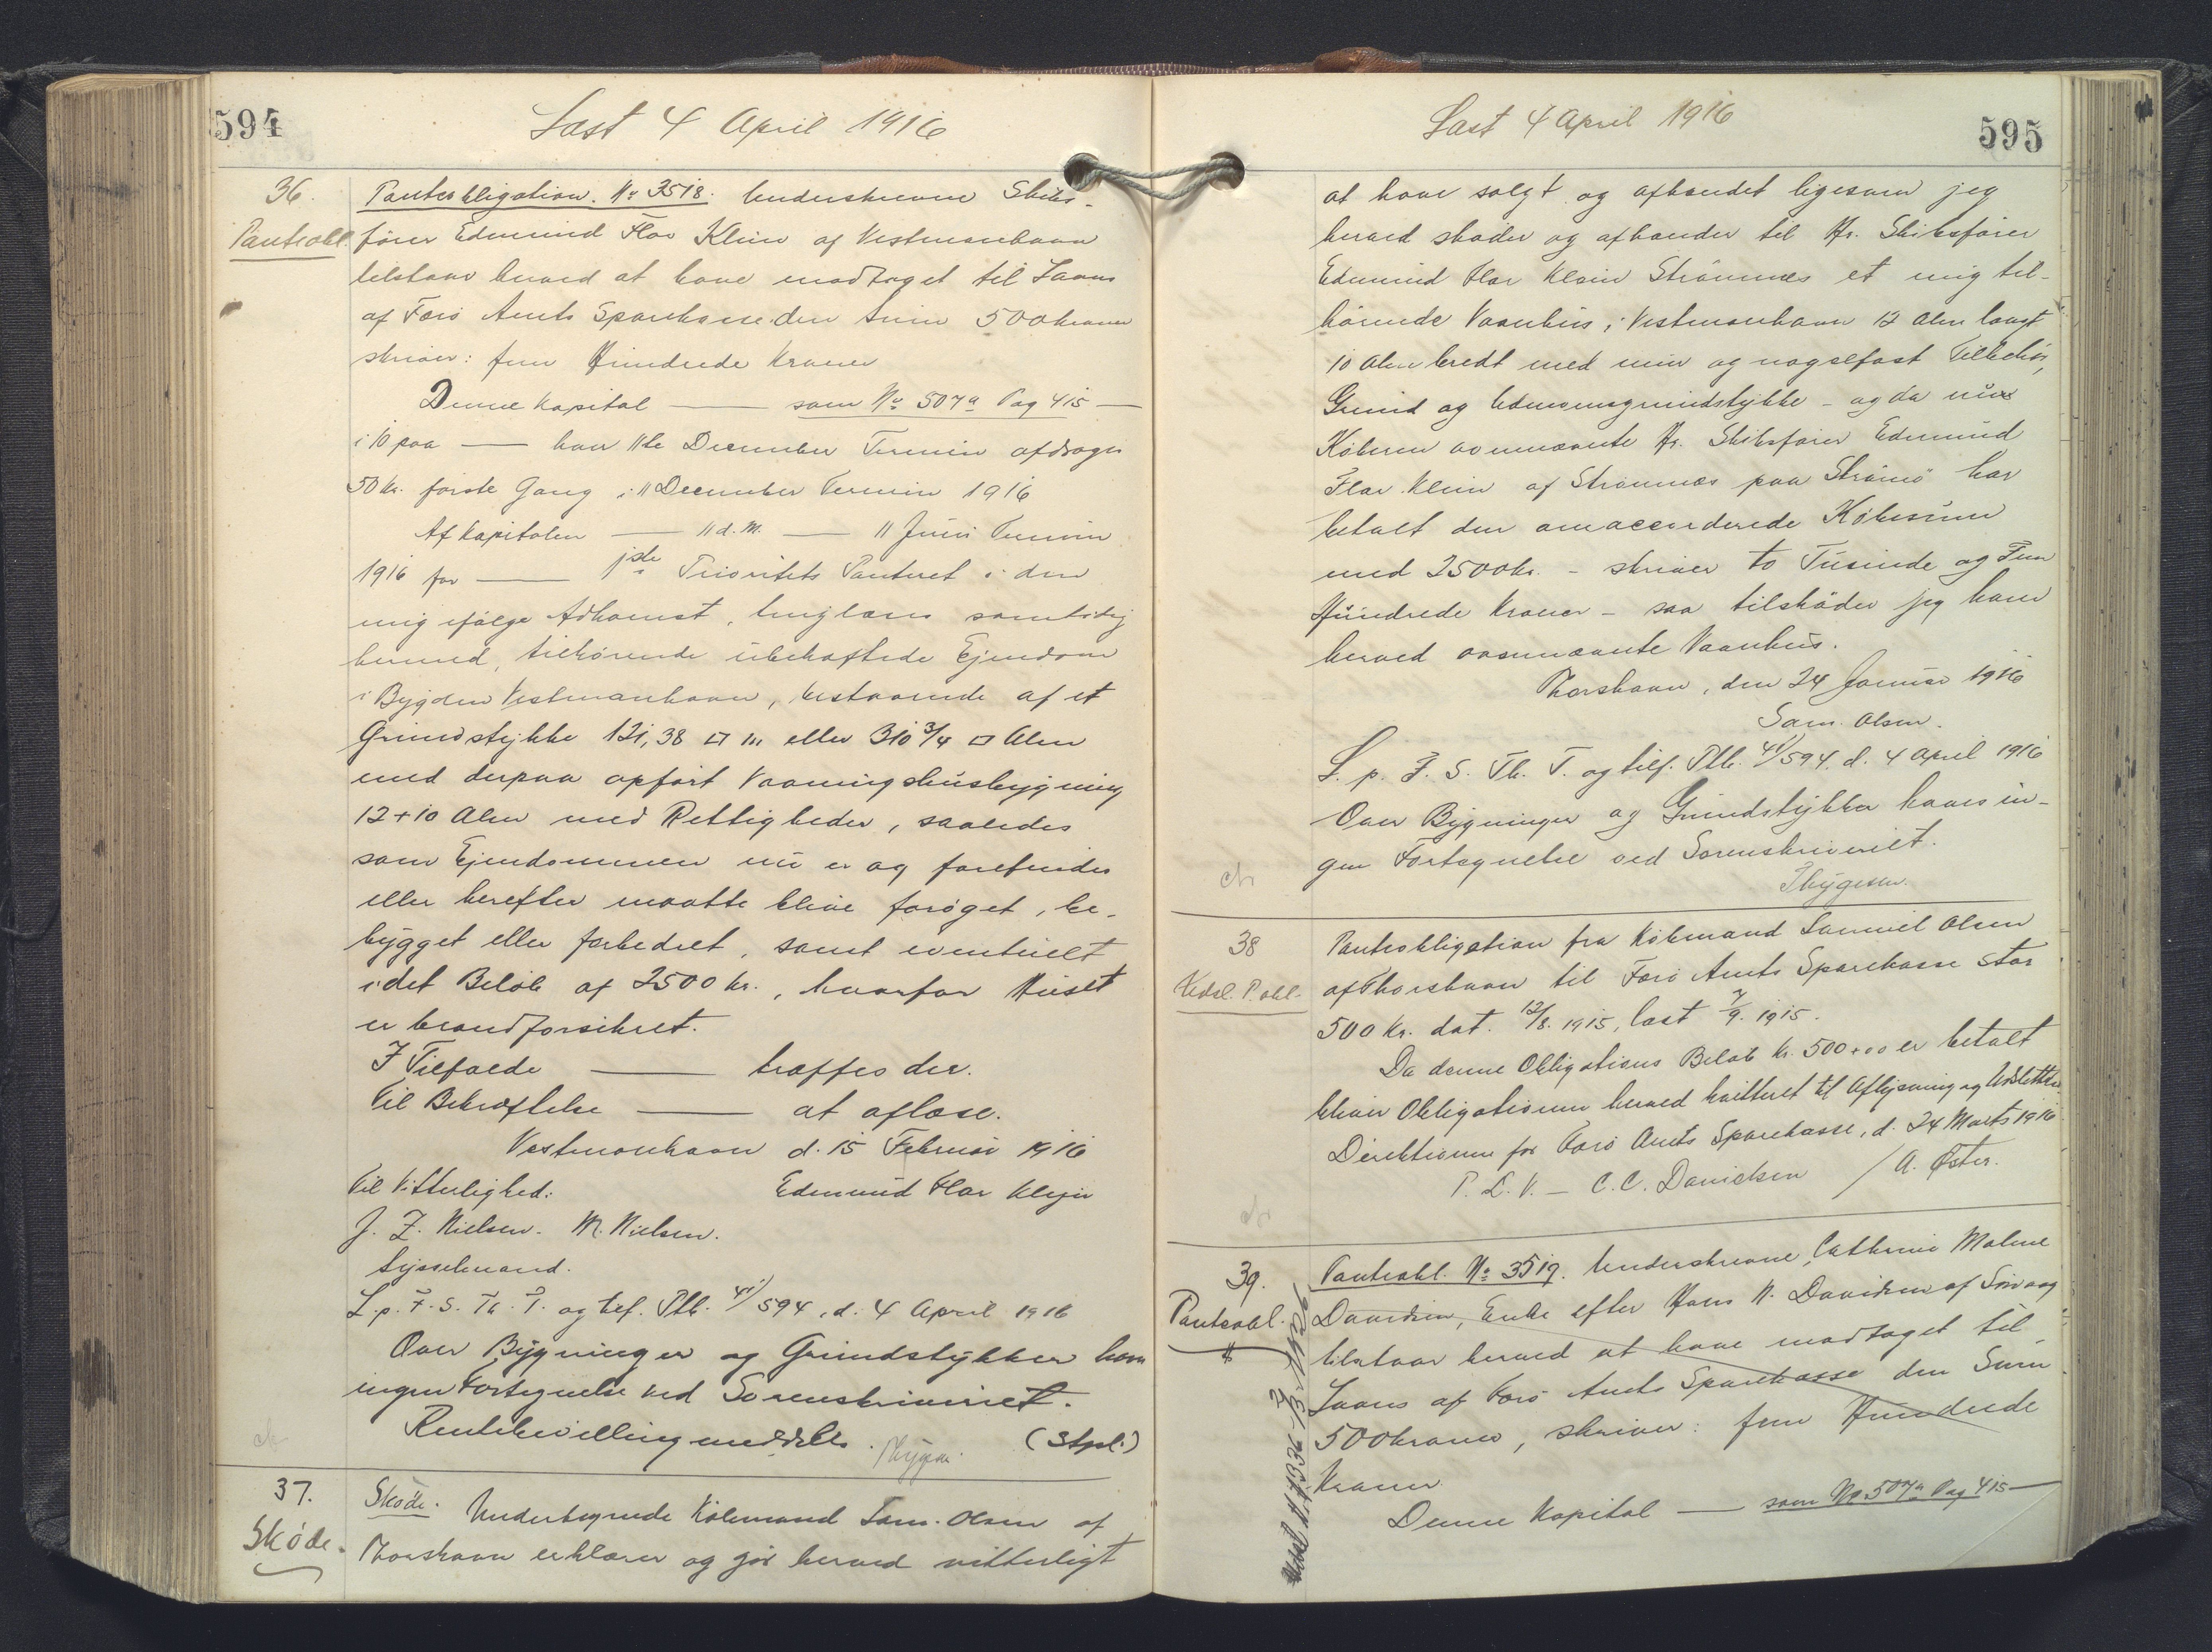 594
Læst 4 April 1916
36.
Pantobl.
Pantobligation. No 3518. Underskrevne Skibs-
fører Edmund Flor Klein af Vestmanhavn
tilstaar herved at have modtaget til Laans
af Færø Amts Sparekasse den Sum 500 kroner
skriver: fem Hundrede Kroner
Denne Kapital — som No 507a Pag 415 —
i 10 paa — hver 11te December Termin afdrages
50 Kr. første Gang i 11 December Termin 1916
Af Kapitalen — 11 d. M. — 11 Juni Termin
1916 for — 1ste Prioritets Panteret i den
mig ifølge Adkomst, tinglæst samtidig
hermed, tilhørende ubehæftede Ejendom
i Bygden Vestmanhavn, bestaaende af et
Grundstykke 121,38 □ m eller 310 3/4 □ Alen
med derpaa opført Vaaningshusbygning
12 + 10 Alen med Rettigheder, saaledes
som Ejendommen nu er og forefindes
eller herefter maatte blive forøget, be-
bygget eller forbedret, samt eventuelt
i det Beløb af 2500 kr., hvorfor Huset
er brandforsikret.
I Tilfælde — træffes der.
Til Bekræftelse — at aflæse.
Vestmanhavn d. 15 Februar 1916
Til Vitterlighed: Edmund Flor Klejn
J. Z. Nielsen. M. Nielsen.
Sysselmand.
L. p. F. S. Th. T. og tilf. Ptb. 41/594, d. 4 April 1916
Over Bygninger og Grundstykker haves
ingen Fortegnelse ved Sorenskriveriet.
Rentebevilling meddelt. Thygesen. (Stpl.)
37.
Skøde.
Skøde. Undertegnede Købmand Sam. Olsen af
Thorshavn erklærer og gør herved vitterligt
Læst 4 April 1916
595
at have solgt og afhændet ligesom jeg
herved skøder og afhænder til Hr. Skibsfører
Edmund Flor Klein Strømnæs et mig til-
hørende Vaanhus i Vestmanhavn 12 Alen langt
10 Alen bredt med mur og nagelfast Tilbehør,
Grund og Udenomsgrundstykke – og da nu
Køberen ovennævnte Hr. Skibsfører Edmund
Flor Klein af Strømnæs paa Strømø har
betalt den omaccorderede Købesum
med 2500 kr. – skriver to Tusinde og Fem
Hundrede Kroner – saa tilskøder jeg ham
herved ovennævnte Vaanhus.
Thorshavn, den 24 Januar 1916
Sam. Olsen.
L. p. F. S. Th. T. og tilf. Ptb. 41/594. d. 4 April 1916
Over Bygninger og Grundstykker haves in-
gen Fortegnelse ved Sorenskriveriet.
Thygesen.
38
Udsl. P.obl.
Pantobligation fra Købmand Samuel Olsen
af Thorshavn til Færø Amts Sparekasse stor
500 Kr. dat. 12/8. 1915, læst 7/9. 1915.
Da denne Obligations Beløb kr. 500+00 er betalt
bliver Obligationen herved kvitteret til Aflysning og Udslettelse
Direktionen for Færø Amts Sparekasse, d. 24 Marts 1916
P. L. V. – C. C. Danielsen / A. Øster.
39.
Pantobl.
Pantobl. No 3519. Underskrevne, Cathrine Malene
Davidsen, Enke efter Hans N. Davidsen af Sørvaag
tilstaar herved at have modtaget til
Laans af Færø Amts Sparekasse den Sum
500 kroner, skriver: fem Hundrede
Kroner
Denne Kapital — som No 507a Pag 415 —